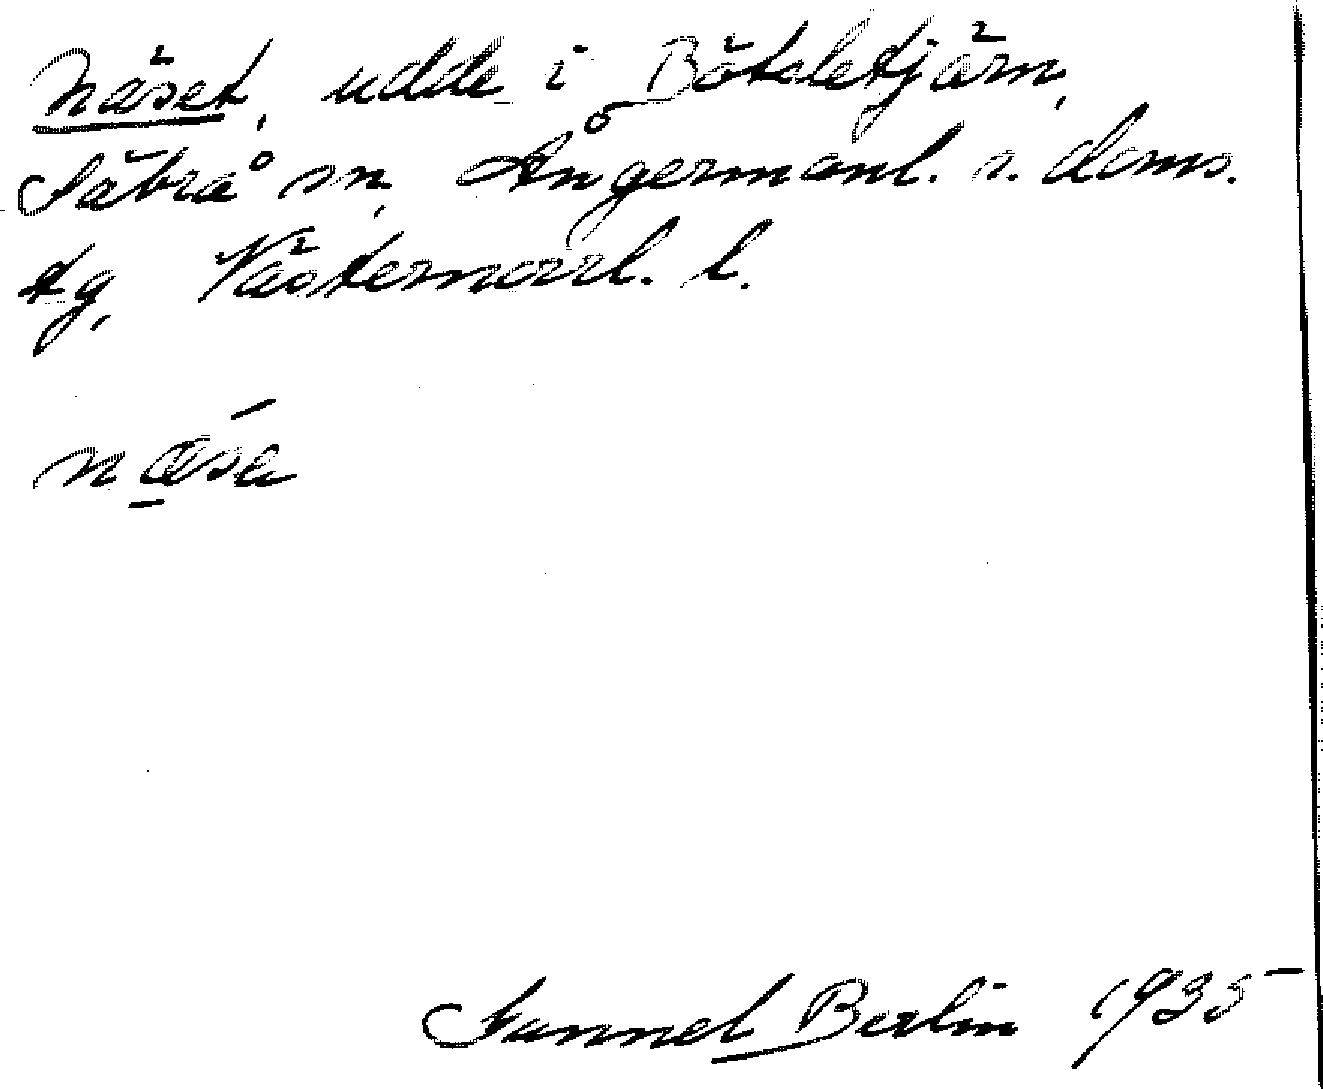 Näset, udde i Böteletjärn,
Säbrå sn, Ångermanl. s. doms.
tg, Västernorrl. l.
nǽ̱sa
Gunnel Berlin 1935